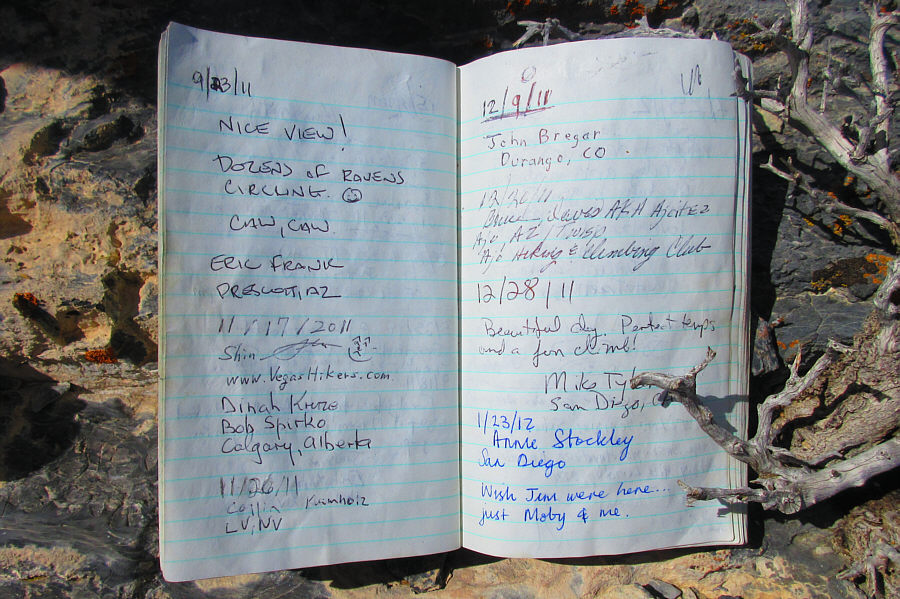 9/23/11
NICE VIEW!
DOZENS OF RAVENS
CIRCLING.
CAW, CAW.
ERIC FRANK
PRESCOTT, AZ
11/17/2011
Shin
www.VegasHikers.com
Dinah Kruze
Bob Spirko
Calgary, Alberta
11/26/11
Collin Krumholz
LV, NV
12/9/11
John Bregar
Durango, CO.
12/20/11
AKA Ajoitez
Ajo, AZ
Ajo Hiking & Climbing Club
12/28/11
Beautiful day. Perfect temps
and a fun climb!
Mike
San Diego,
1/23/12
Annie Stockley
San Diego
Wish Jim were here...
just Moby & me.